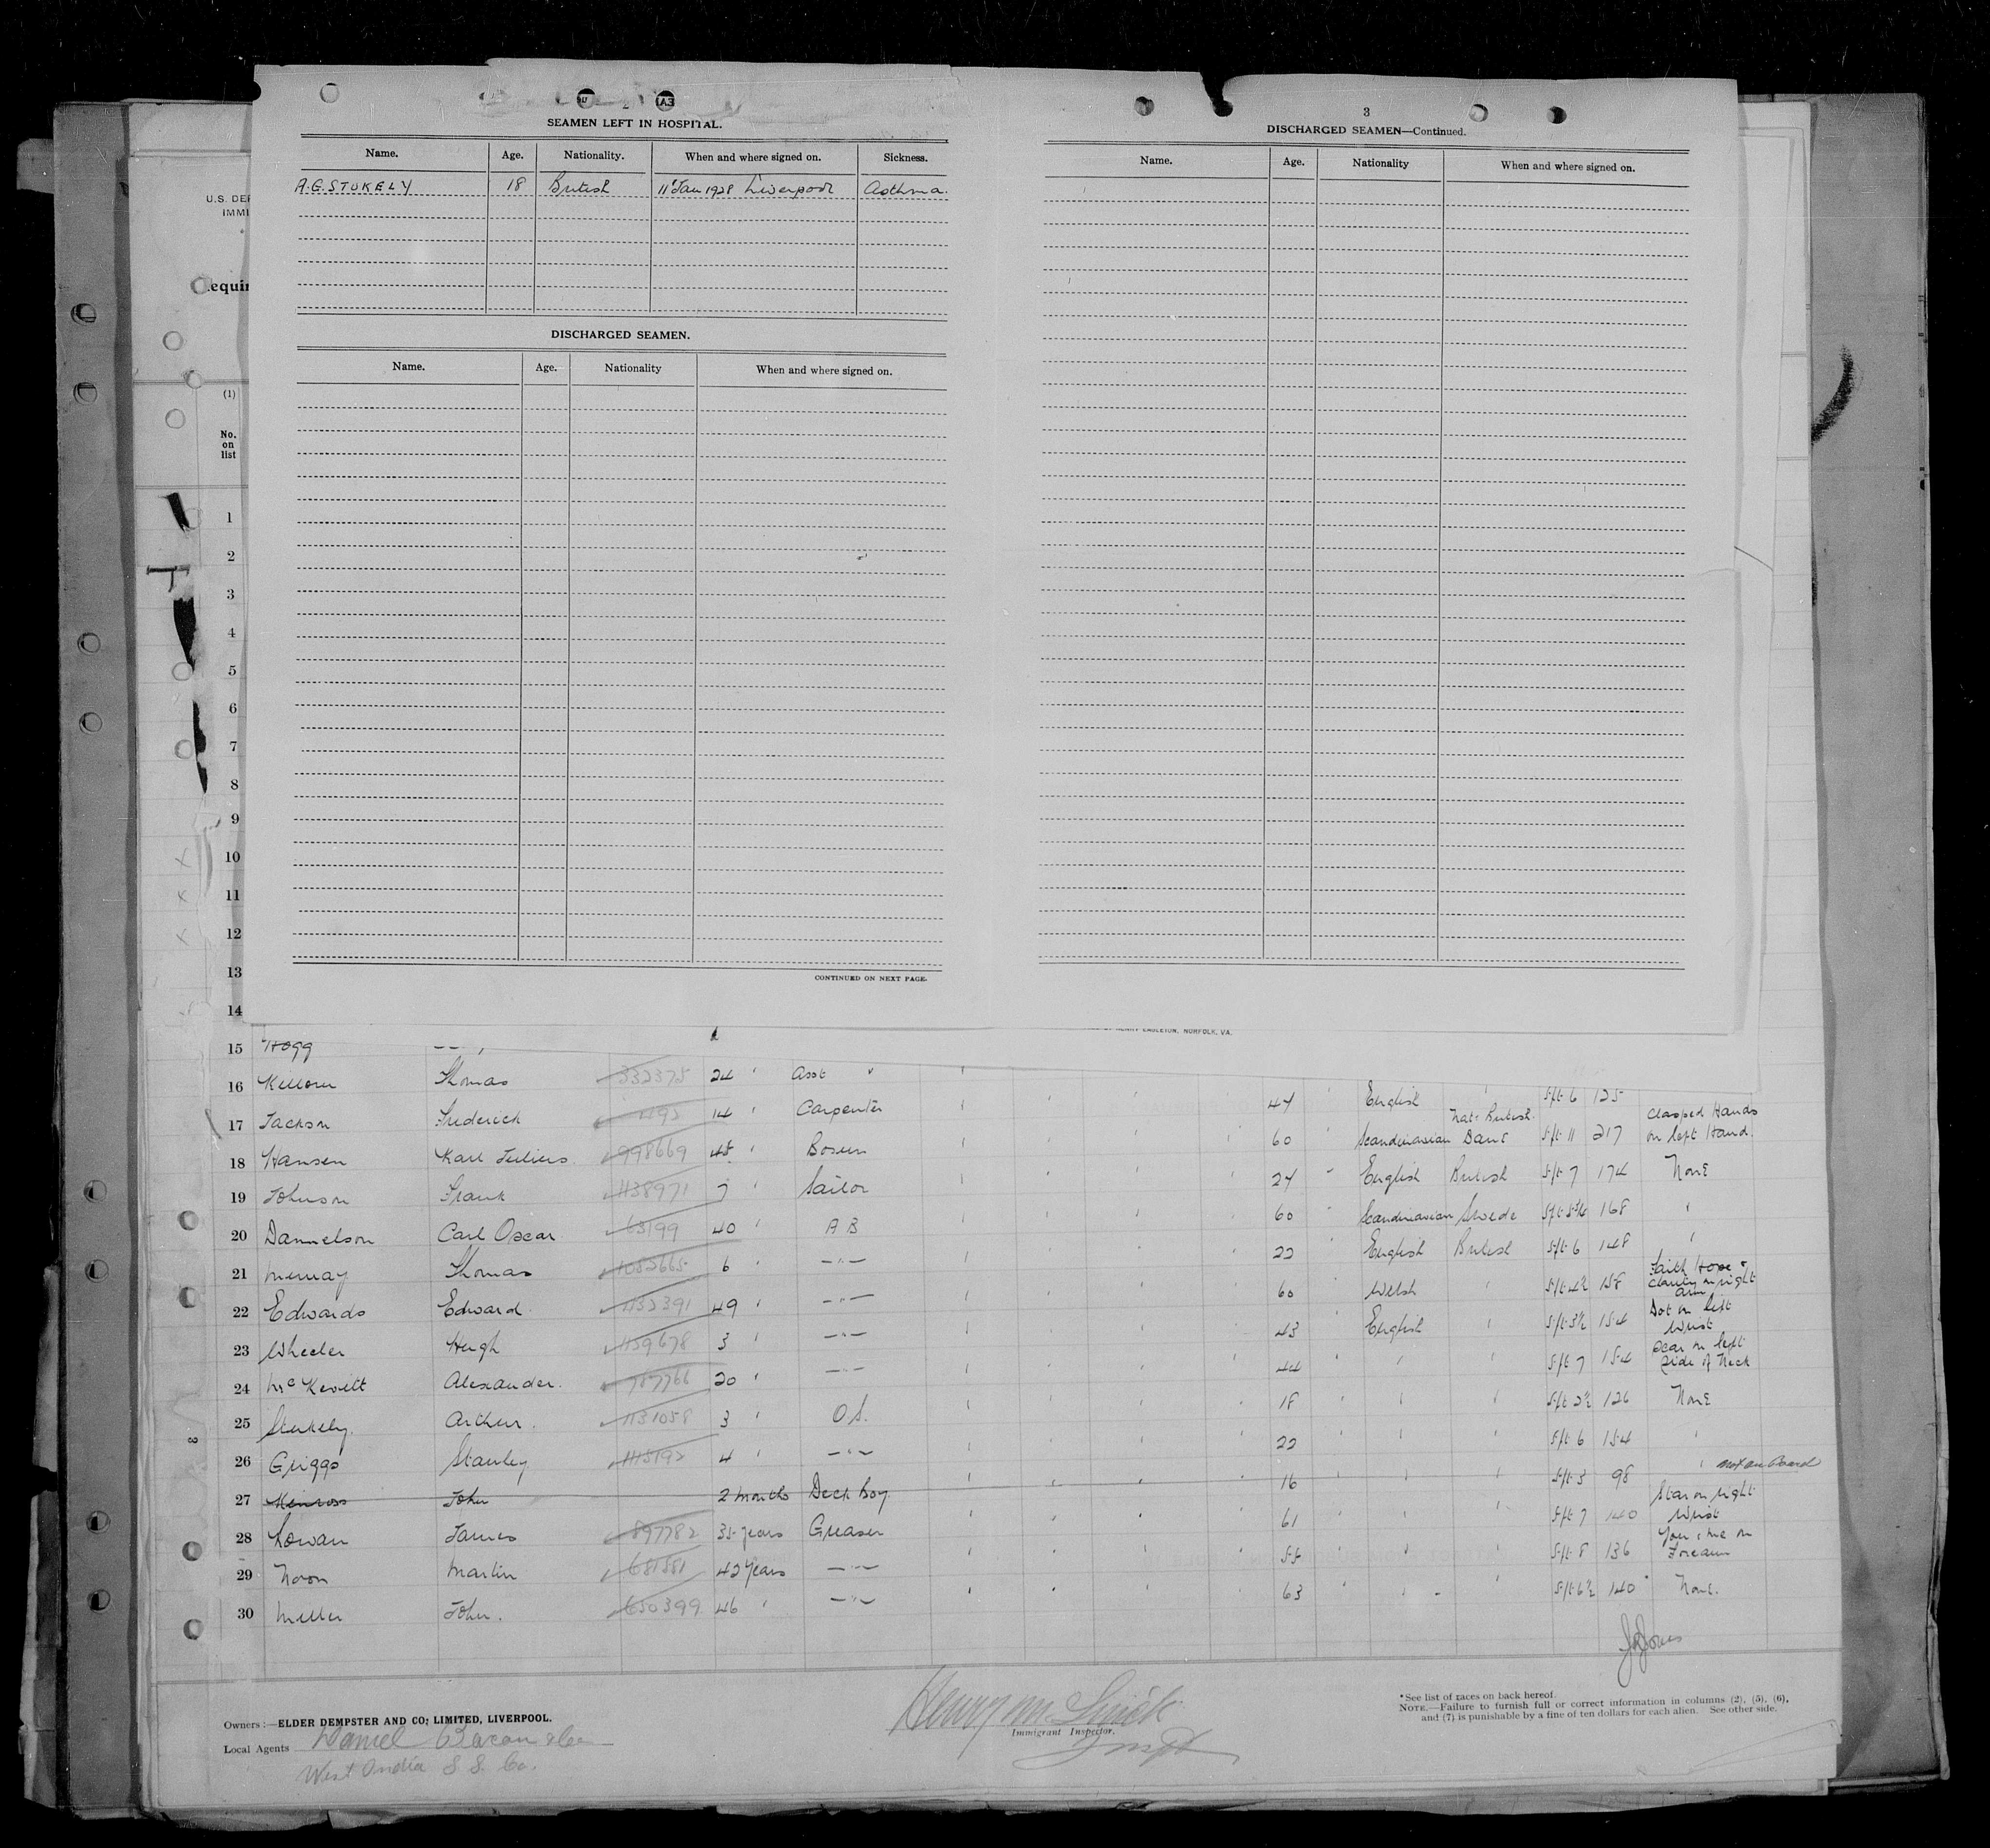 2
SEAMEN LEFT IN HOSPITAL.
Name. Age. Nationality. When and where signed on. Sickness.
A.G. STUKELY 18 British 11 Jan 1928 Liverpool Asthma.
DISCHARGED SEAMEN.
Name. Age. Nationality When and where signed on.
CONTINUED ON NEXT PAGE.
3
DISCHARGED SEAMEN—Continued.
Name. Age. Nationality When and where signed on.
U.S. DEP
IMMI
equir
(1)
No.
on
list
1
2
3
4
5
6
7
8
9
10
11
12
13
14
HENRY EAGLETON, NORFOLK, VA.
15 Hogg
16 Thomas 332375 24 " Asst "
17 Jackson Frederick 14 " Carpenter 47 " English " 5ft 6 125
18 Hansen Karl Julius 998669 45 " Bosun 60 " Scandinavian Nat. British Dane 5ft 11 217 Clasped Hands on left Hand.
19 Johnson Frank 1138971 7 " Sailor 24 " English British 5ft 7 174 None
20 Dannelson Carl Oscar 63199 40 " A B 60 " Scandinavian Swede 168 "
21 Murray Thomas 1082665 6 " —"— 22 " English British 5ft 6 148 "
22 Edwards Edward 1132391 49 " —"— 60 Welsh " 5ft 4½ 158 Faith Hope & Charity on right arm
23 Wheeler Hugh 1159678 3 " —"— 43 English " 5ft 3½ 154 Dot on left Wrist
24 McKevitt Alexander. 20 " —"— 44 " " " 5ft 7 154 Scar on left Side of Neck
25 Stukely. Arthur. 1131058 3 " O S. 18 " " " 5ft 2½ 126 None
26 Griggs Stanley 1115192 4 " —"— 22 " " " 5ft 6 154 "
27 Kinross John 2 months Deck Boy 16 " " " 5ft 3 98 " not on board
28 Cowan James 897782 35 years Greaser 61 " " " 5ft 7 140 Star on right Wrist
29 Noon Martin 681581 42 years —"— 55 " " " 5ft 8 136 Forearm
30 Miller John. 650399 46 " —"— 63 " " " 5ft 6½ 140 None.
Owners :—ELDER DEMPSTER AND CO; LIMITED, LIVERPOOL.
Local Agents Daniel Bacon & Co
West India S S. Co.
Immigrant Inspector.
*See list of races on back hereof.
NOTE.—Failure to furnish full or correct information in columns (2), (5), (6),
and (7) is punishable by a fine of ten dollars for each alien. See other side.